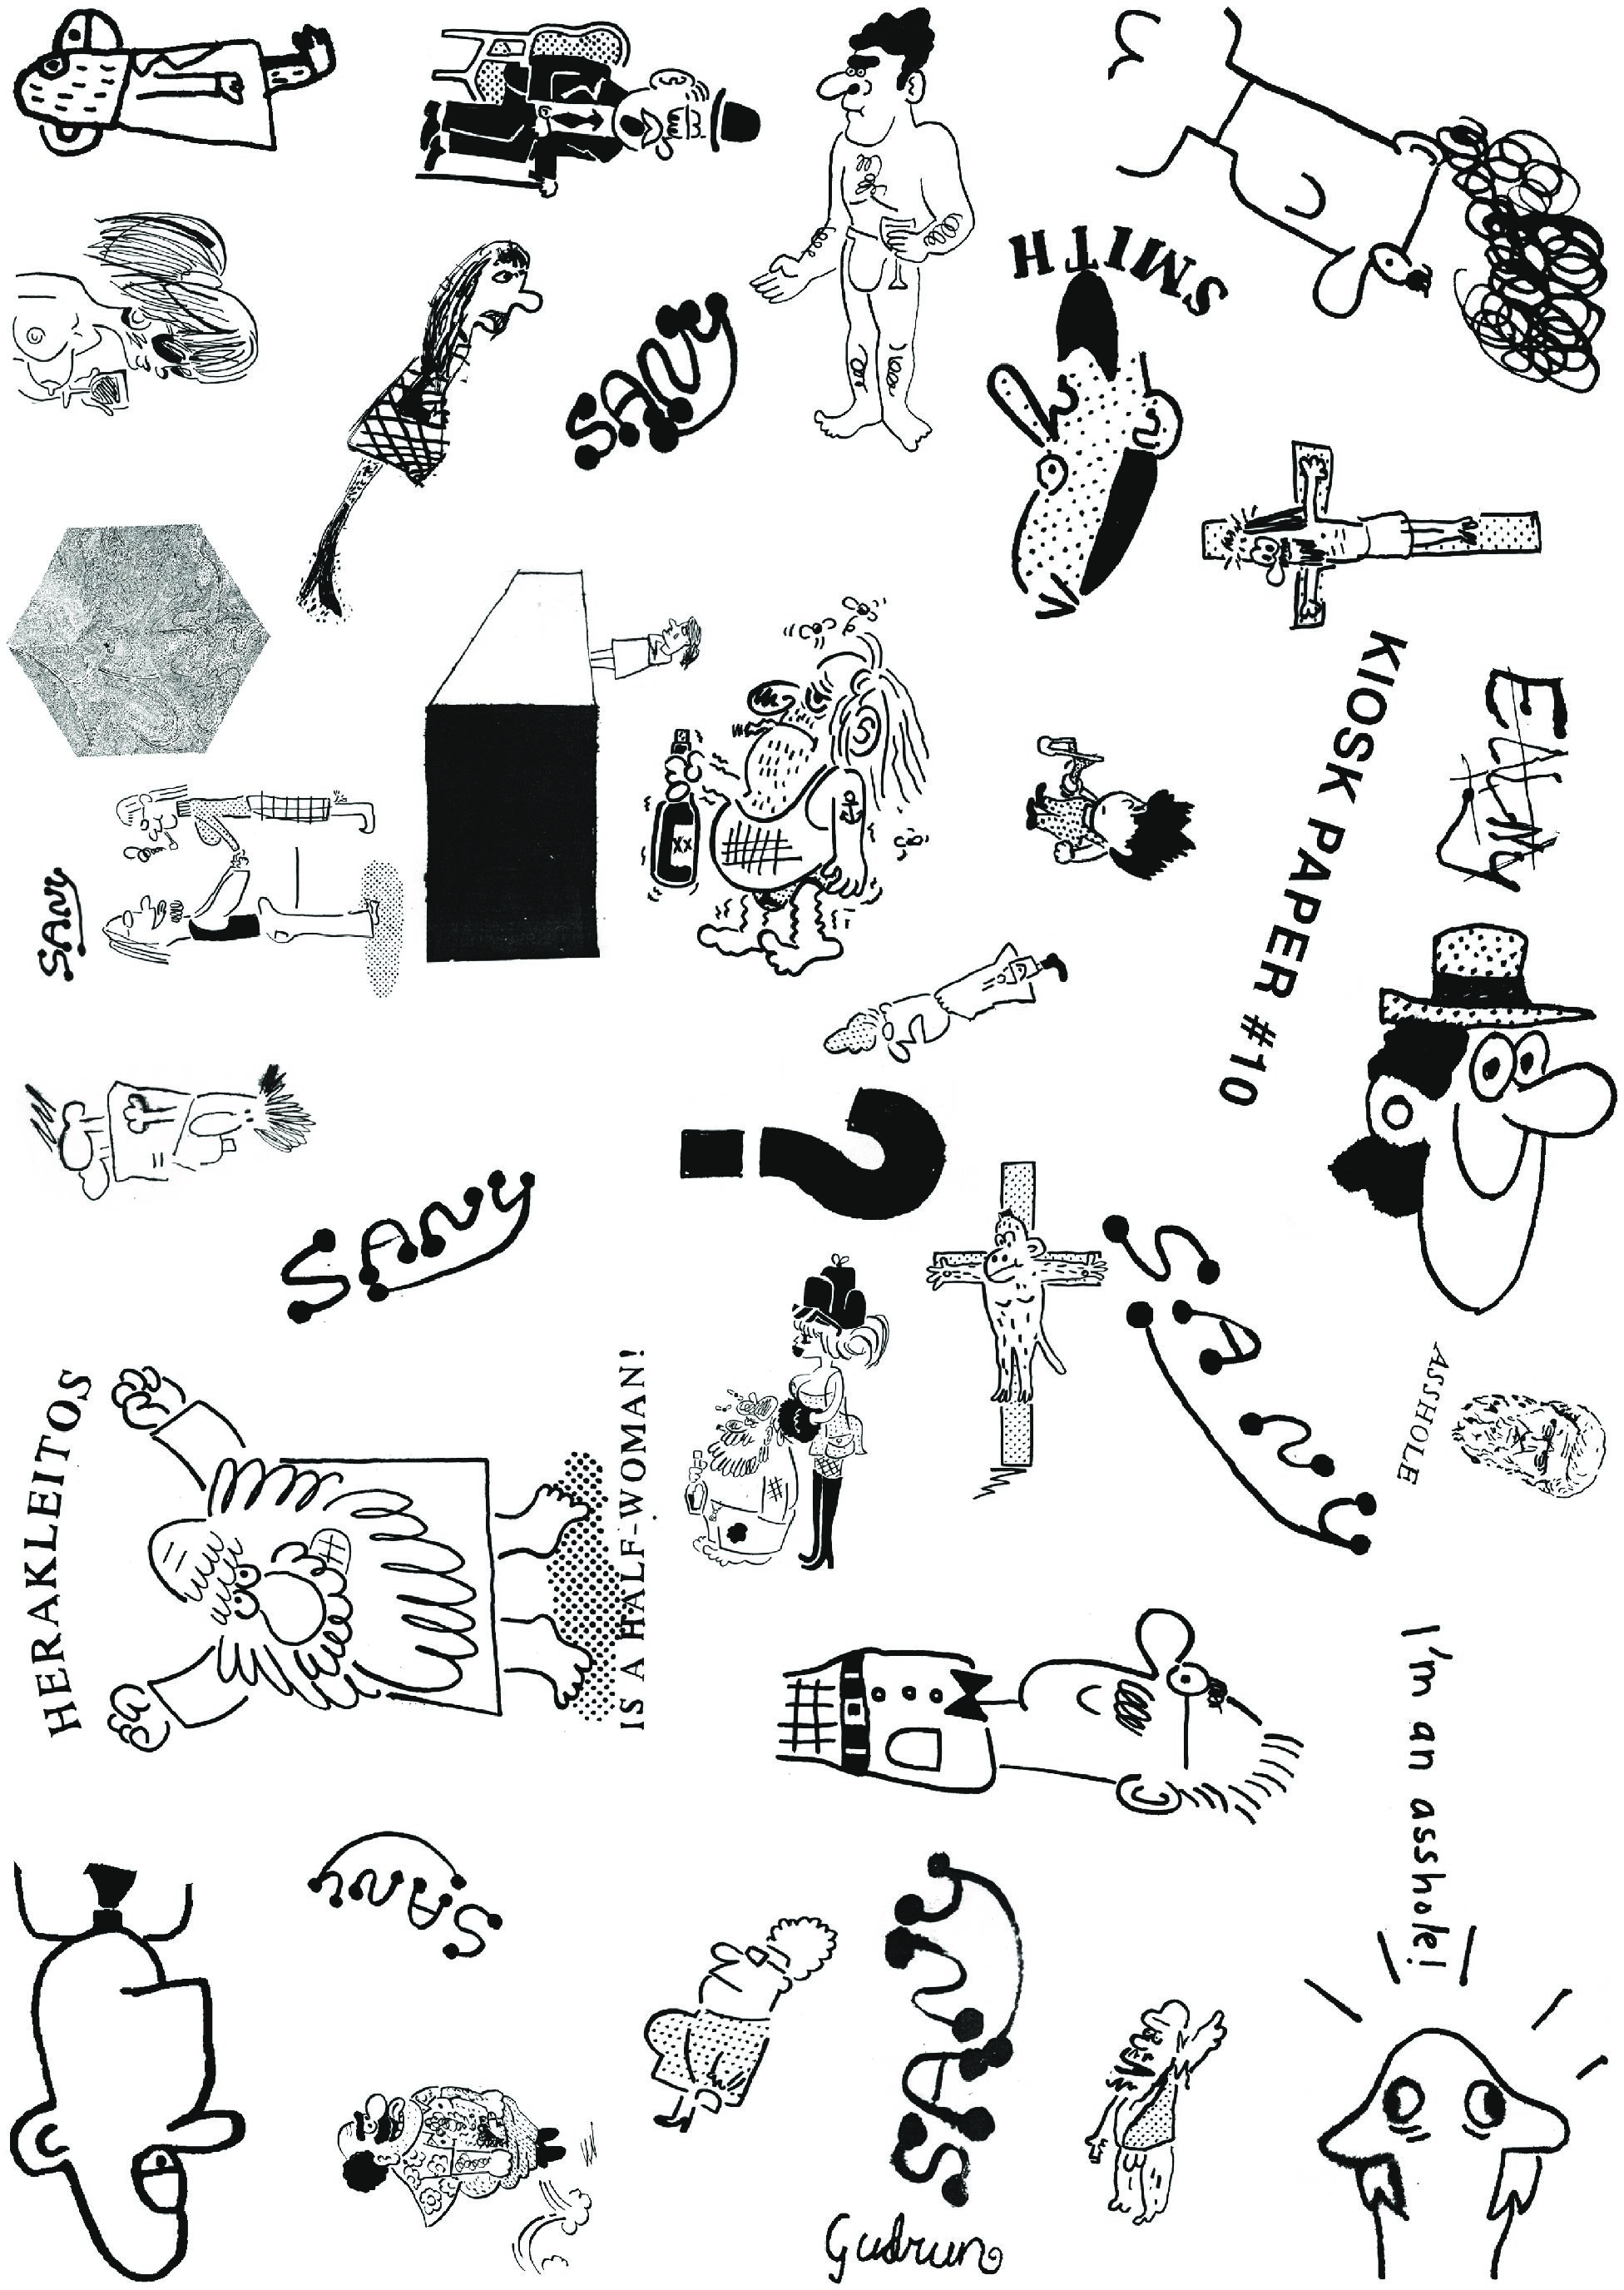 SMITH
SANY
KIOSK PAPER #10
SANY
SANY
SANY
ASSSHOLE
HERAKLEITOS
IS A HALF-WOMAN!
XX
I'm an asshole!
SANY
SANY
Gudrun